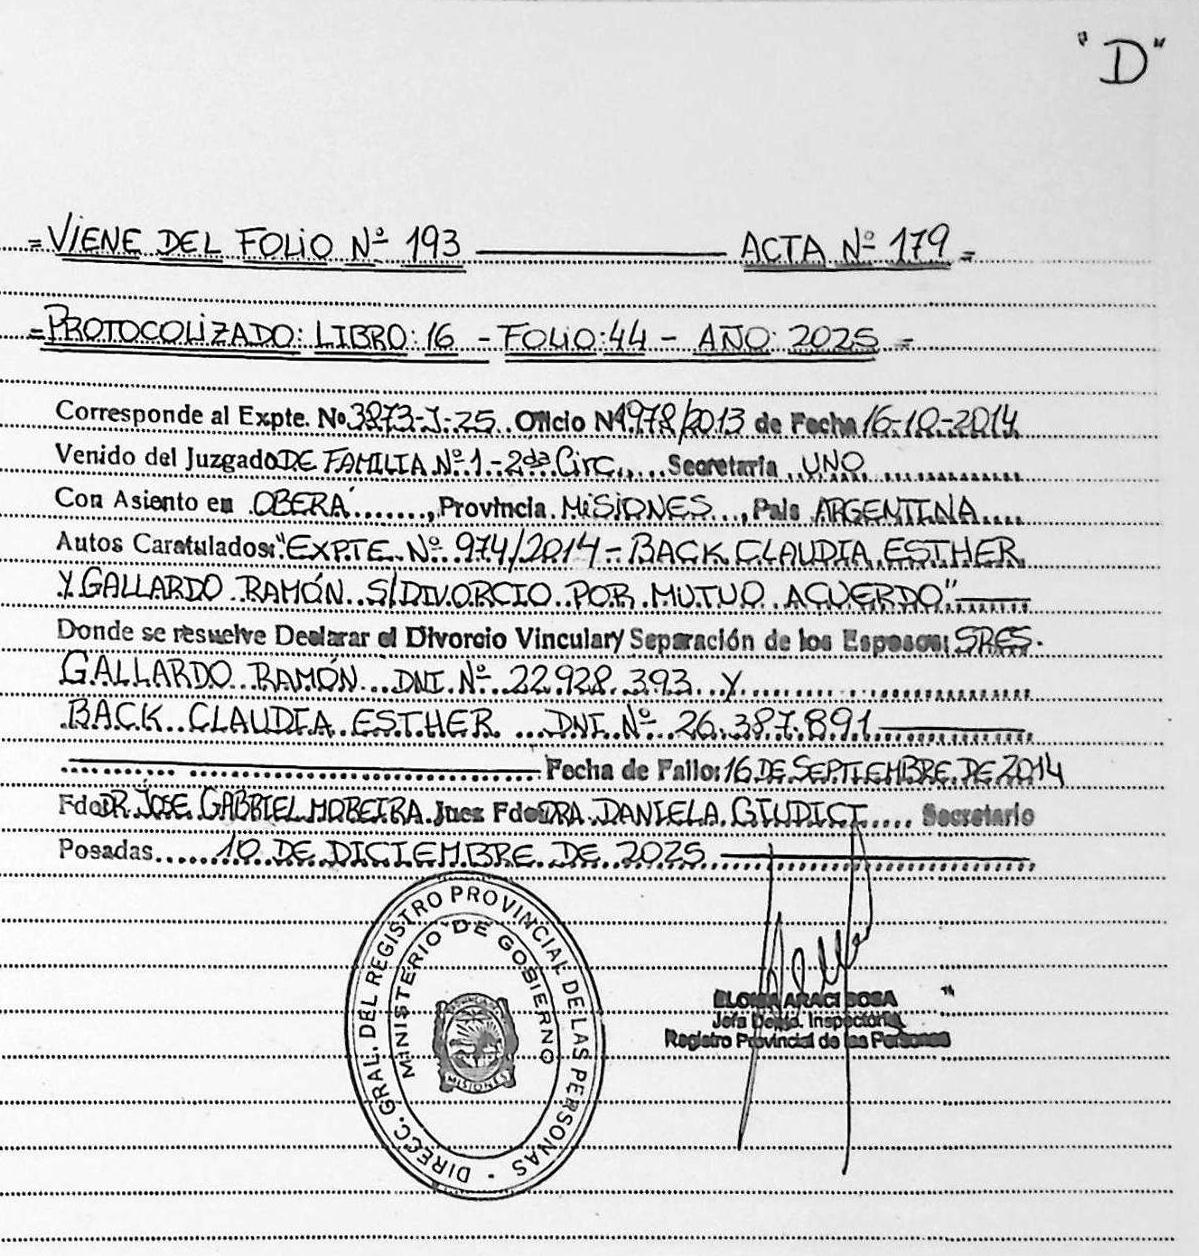 "D"
=VIENE DEL FOLIO Nº 193 ACTA Nº 179=
=PROTOCOLIZADO: LIBRO: 16 - FOLIO: 44 - AÑO: 2025=
Corresponde al Expte. Nº 3873-J-25 Oficio Nº 1978/2013 de Fecha 16-10-2014
Venido del Juzgado DE FAMILIA Nº 1 - 2da Circ., Secretaria UNO
Con Asiento en OBERÁ, Provincia MISIONES, Pais ARGENTINA
Autos Caratulados: "EXPTE. Nº 974/2014 - BACK CLAUDIA ESTHER
Y GALLARDO RAMÓN S/DIVORCIO POR MUTUO ACUERDO"
Donde se resuelve Declarar el Divorcio Vincular y Separación de los Esposos: SRES.
GALLARDO RAMÓN DNI Nº 22.928.393 Y
BACK CLAUDIA ESTHER DNI Nº 26.387.891
Fecha de Fallo: 16 DE SEPTIEMBRE DE 2014
Fdo DR. JOSE GABRIEL MOREIRA Juez Fdo DRA. DANIELA GIUDICI Secretario
Posadas 10 DE DICIEMBRE DE 2025
DIRECC. GRAL. DEL REGISTRO PROVINCIAL DE LAS PERSONAS -
MINISTERIO DE GOBIERNO
MISIONES
ARACI SOSA
Jefa Inspectoría
Registro Provincial de las Personas